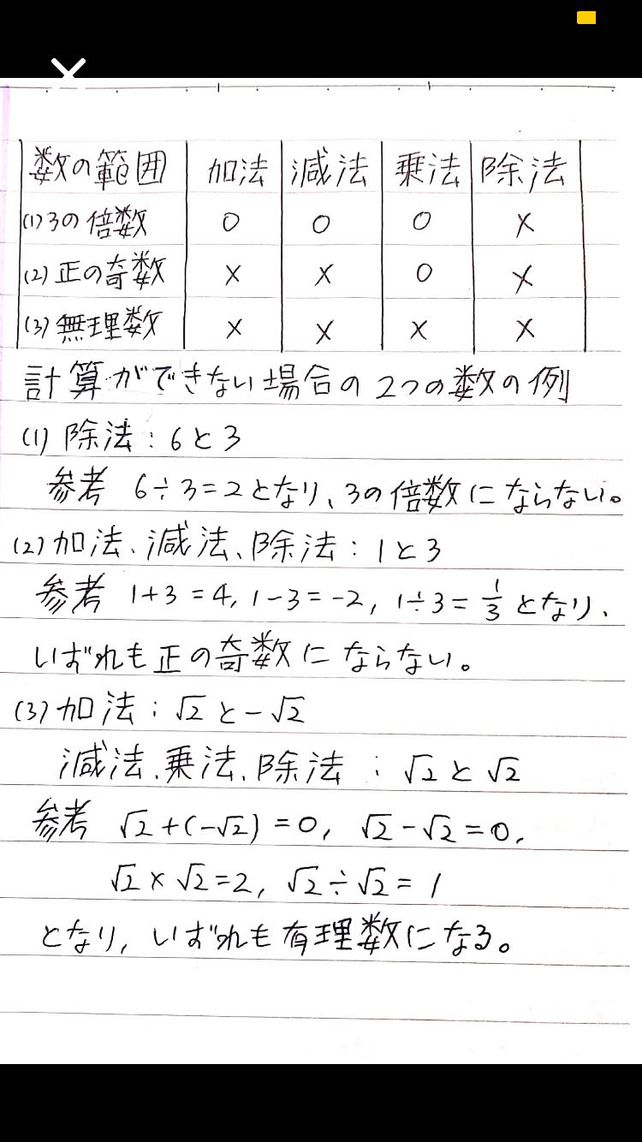 数の範囲 加法 減法 乗法 除法
(1)3の倍数 ○ ○ ○ ×
(2)正の奇数 × × ○ ×
(3)無理数 × × × ×
計算ができない場合の2つの数の例
(1) 除法:6と3
参考 6÷3=2となり、3の倍数にならない。
(2)加法、減法、除法:1と3
参考 1+3=4, 1-3=-2, 1÷3=1/3となり、
いずれも正の奇数にならない。
(3)加法:√2と-√2
減法、乗法、除法:√2と√2
参考 √2+(-√2)=0, √2-√2=0,
√2×√2=2, √2÷√2=1
となり,いずれも有理数になる。